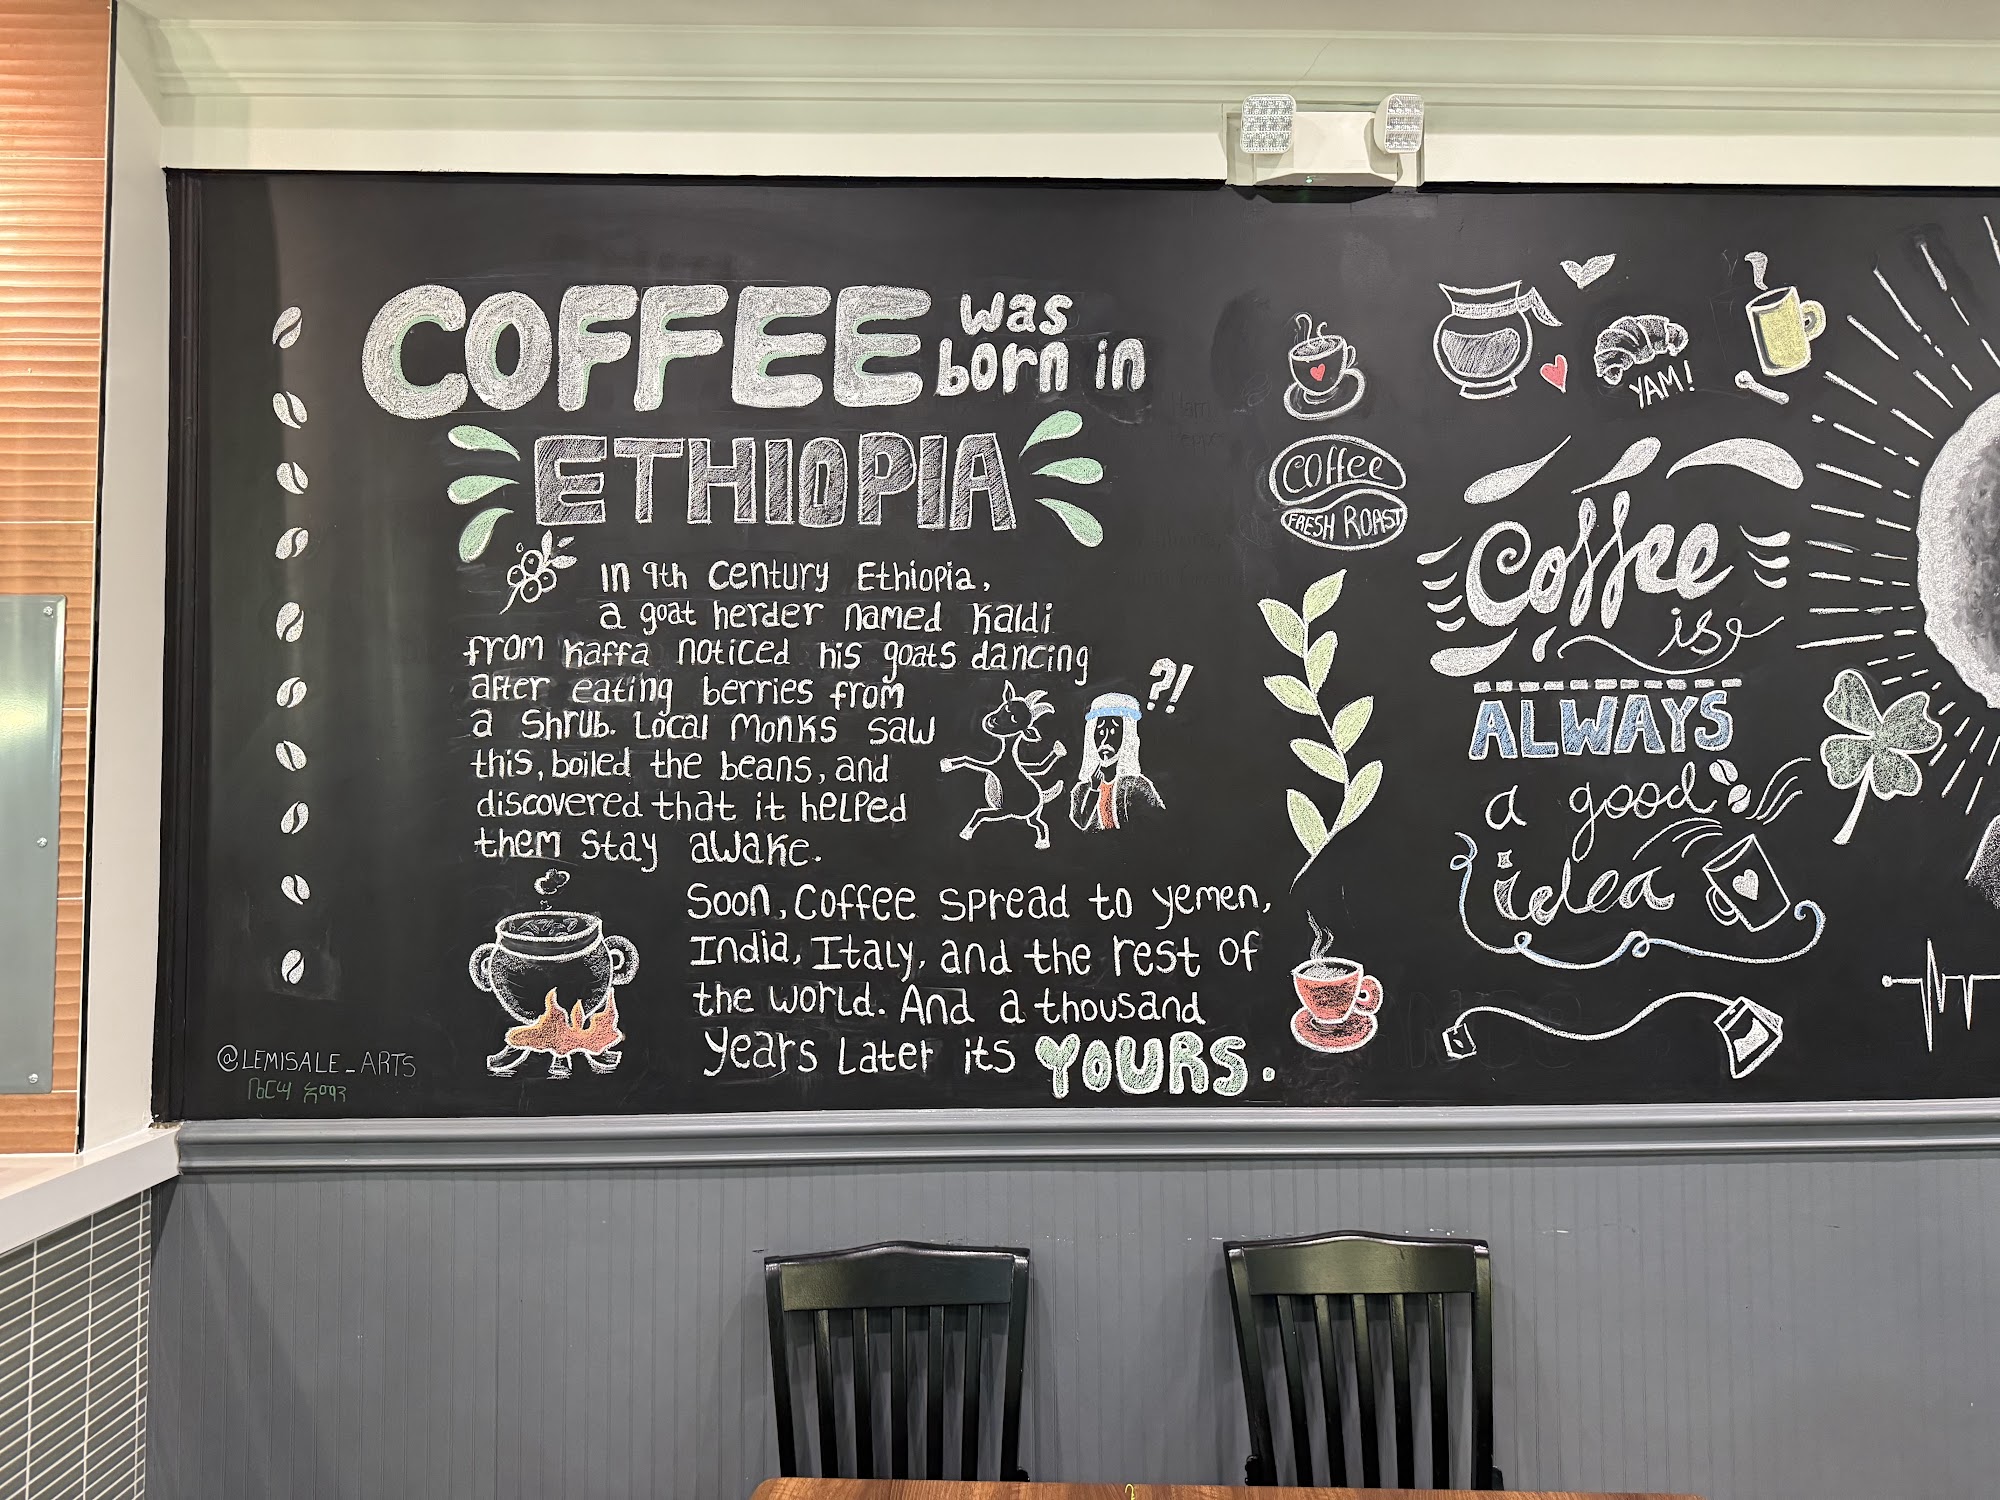 COFFEE was born in
ETHIOPIA
In 9th century Ethiopia,
a goat herder named Kaldi
from Kaffa noticed his goats dancing
after eating berries from
a shrub. Local Monks saw
this, boiled the beans, and
discovered that it helped
them stay awake.
?!
Soon, Coffee spread to Yemen,
India, Italy, and the rest of
the world. And a thousand
years Later its YOURS.
@LEMISALE_ARTS
coffee
FRESH ROAST
YAM!
Coffee
is
ALWAYS
a good
idea